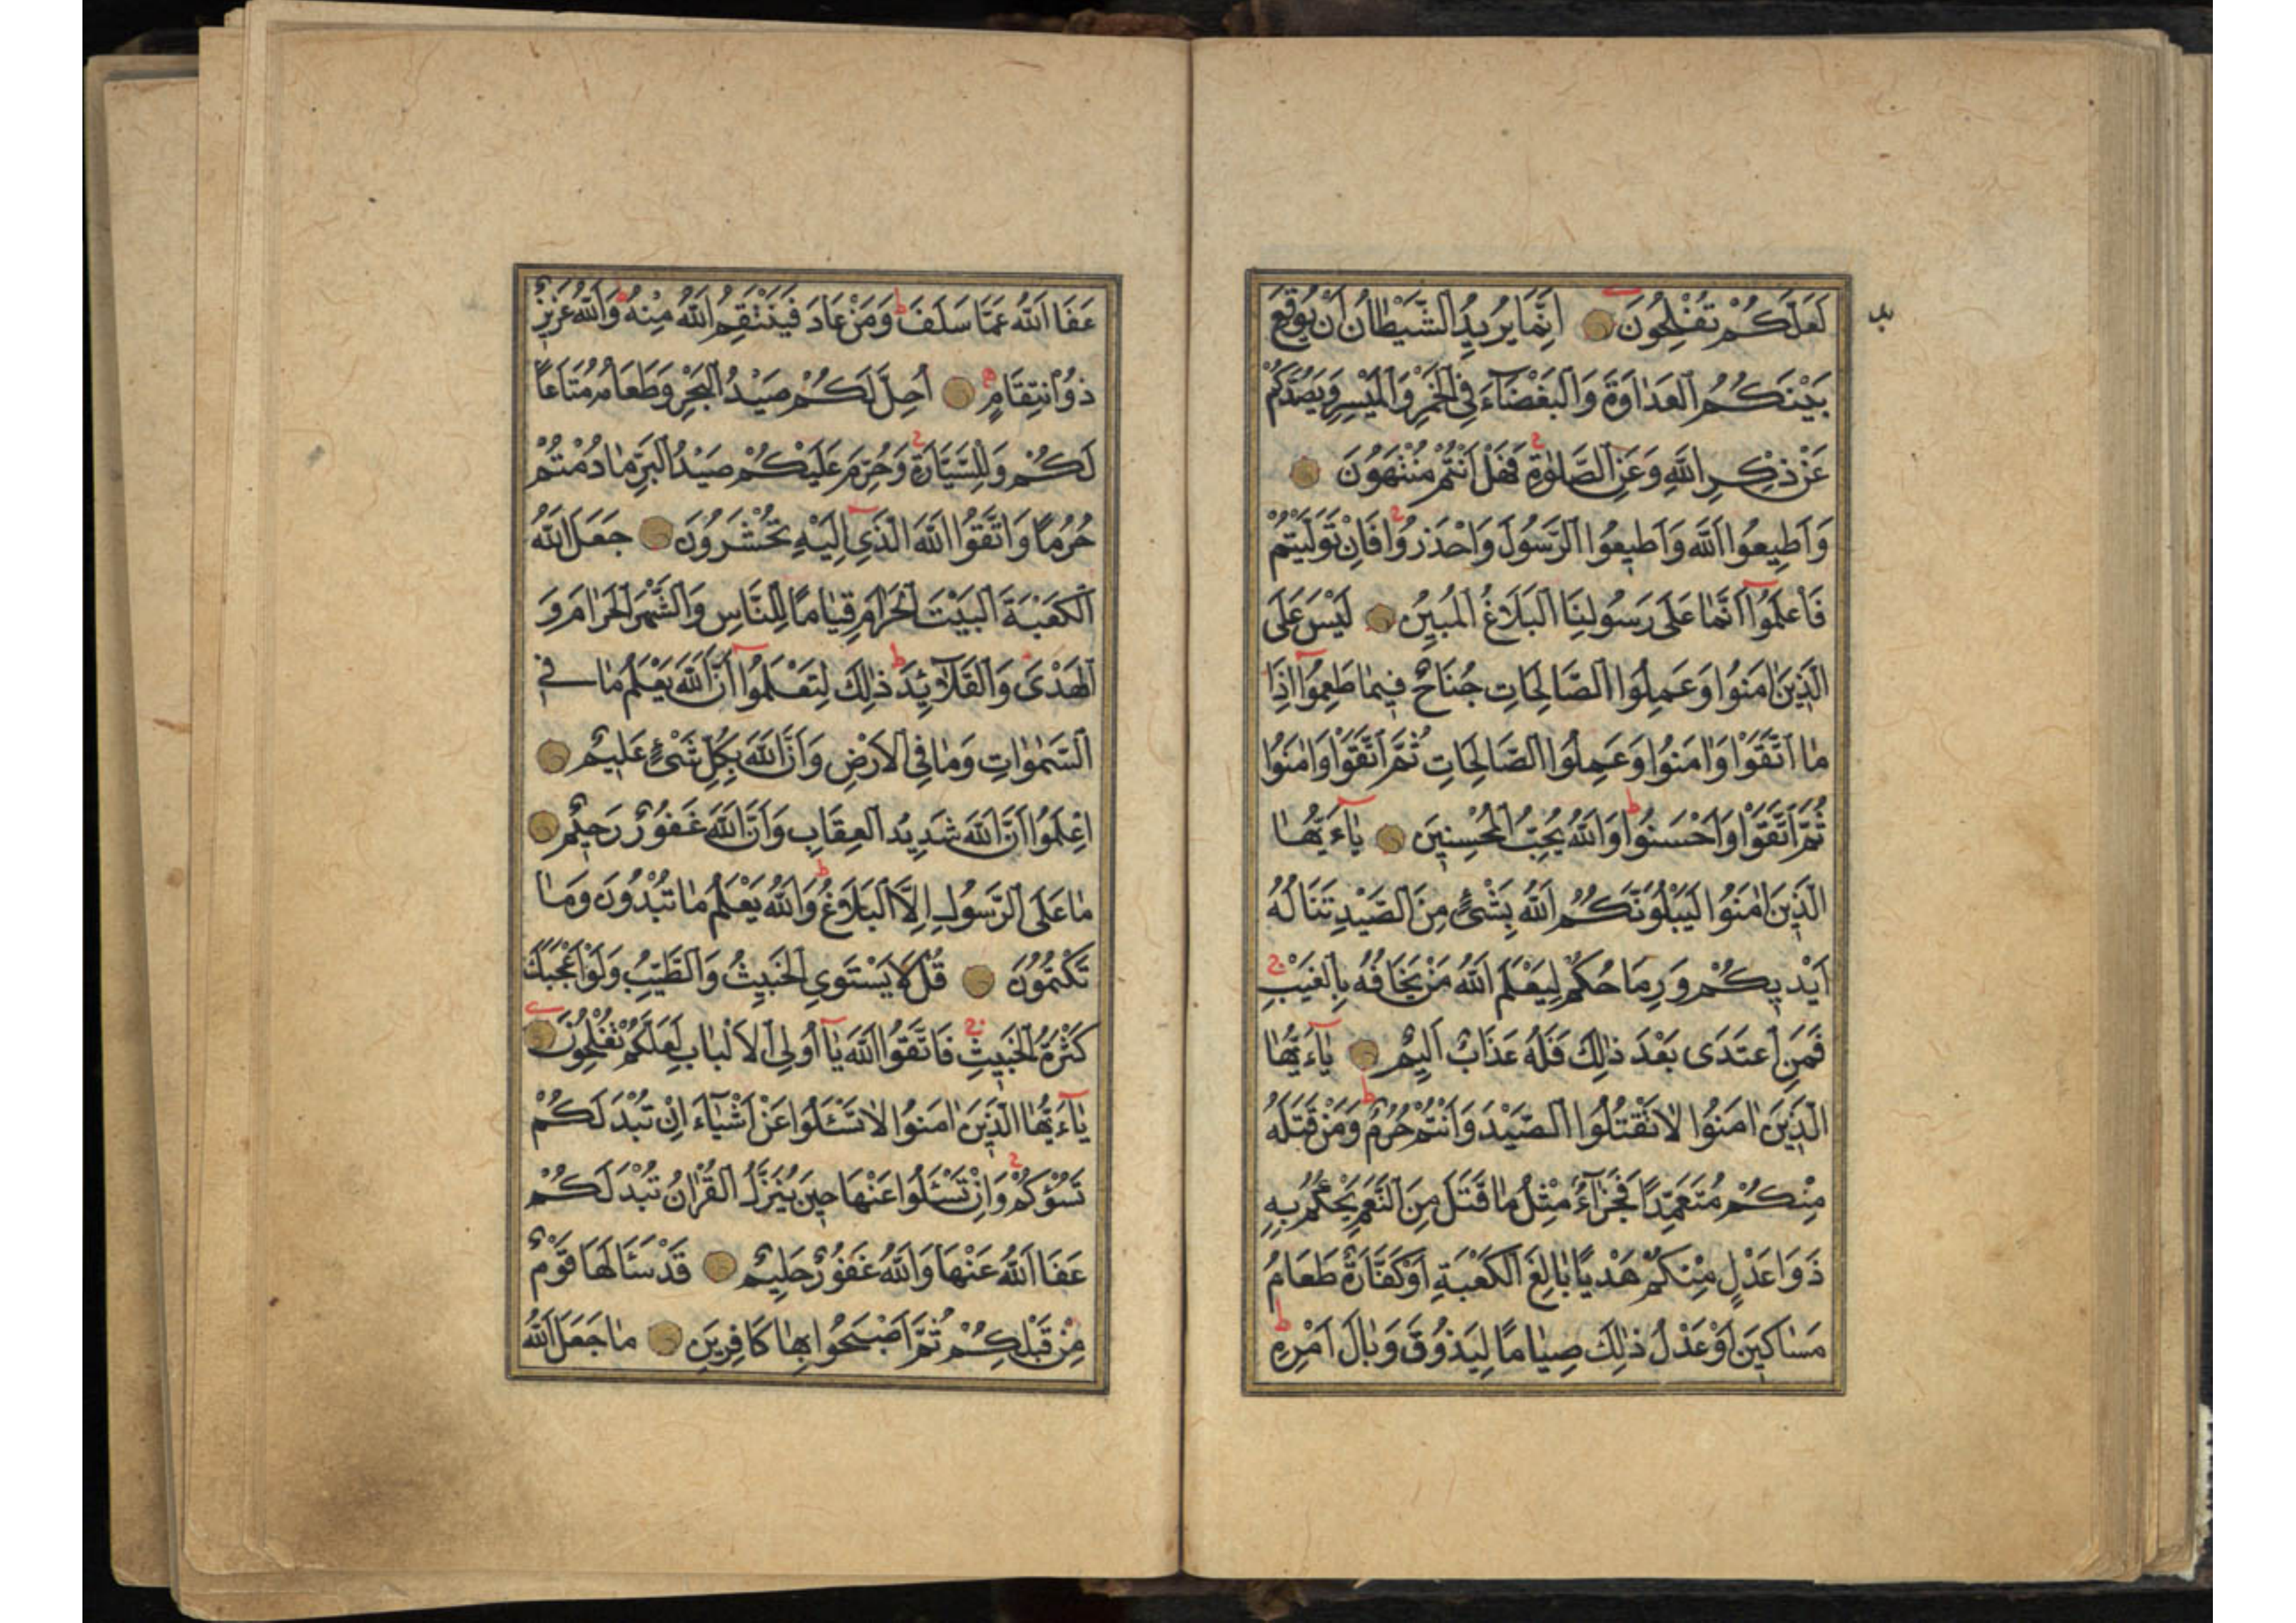 لَعَلَّكُمْ تُفْلِحُونَ اِنَّمَا يُرِيدُ الشَّيْطَانُ اَنْ يُوقِعَ
بَيْنَكُمُ الْعَدَاوَةَ وَالْبَغْضَاءَ فِي الْخَمْرِ وَالْمَيْسِرِ وَيَصُدَّكُمْ
عَنْ ذِكْرِ اللّٰهِ وَعَنِ الصَّلٰوةِ فَهَلْ اَنْتُمْ مُنْتَهُونَ
وَاَطِيعُوا اللّٰهَ وَاَطِيعُوا الرَّسُولَ وَاحْذَرُوا فَاِنْ تَوَلَّيْتُمْ
فَاعْلَمُوا اَنَّمَا عَلٰى رَسُولِنَا الْبَلَاغُ الْمُبِينُ لَيْسَ عَلَى
الَّذِينَ اٰمَنُوا وَعَمِلُوا الصَّالِحَاتِ جُنَاحٌ فِيمَا طَعِمُوا اِذَا
مَا اتَّقَوْا وَاٰمَنُوا وَعَمِلُوا الصَّالِحَاتِ ثُمَّ اتَّقَوْا وَاٰمَنُوا
ثُمَّ اتَّقَوْا وَاَحْسَنُوا وَاللّٰهُ يُحِبُّ الْمُحْسِنِينَ يَاءَيُّهَا
الَّذِينَ اٰمَنُوا لَيَبْلُوَنَّكُمُ اللّٰهُ بِشَيْءٍ مِنَ الصَّيْدِ تَنَالُهُ
اَيْدِيكُمْ وَرِمَاحُكُمْ لِيَعْلَمَ اللّٰهُ مَنْ يَخَافُهُ بِالْغَيْبِ
فَمَنِ اعْتَدٰى بَعْدَ ذٰلِكَ فَلَهُ عَذَابٌ اَلِيمٌ يَاءَيُّهَا
الَّذِينَ اٰمَنُوا لَا تَقْتُلُوا الصَّيْدَ وَاَنْتُمْ حُرُمٌ وَمَنْ قَتَلَهُ
مِنْكُمْ مُتَعَمِّدًا فَجَزَاءٌ مِثْلُ مَا قَتَلَ مِنَ النَّعَمِ يَحْكُمُ بِهِ
ذَوَا عَدْلٍ مِنْكُمْ هَدْيًا بَالِغَ الْكَعْبَةِ اَوْ كَفَّارَةٌ طَعَامُ
مَسَاكِينَ اَوْ عَدْلُ ذٰلِكَ صِيَامًا لِيَذُوقَ وَبَالَ اَمْرِهِ
عَفَا اللّٰهُ عَمَّا سَلَفَ وَمَنْ عَادَ فَيَنْتَقِمُ اللّٰهُ مِنْهُ وَاللّٰهُ عَزِيزٌ
ذُو انْتِقَامٍ اُحِلَّ لَكُمْ صَيْدُ الْبَحْرِ وَطَعَامُهُ مَتَاعًا
لَكُمْ وَلِلسَّيَّارَةِ وَحُرِّمَ عَلَيْكُمْ صَيْدُ الْبَرِّ مَا دُمْتُمْ
حُرُمًا وَاتَّقُوا اللّٰهَ الَّذِي اِلَيْهِ تُحْشَرُونَ جَعَلَ اللّٰهُ
الْكَعْبَةَ الْبَيْتَ الْحَرَامَ قِيَامًا لِلنَّاسِ وَالشَّهْرَ الْحَرَامَ وَ
الْهَدْيَ وَالْقَلَائِدَ ذٰلِكَ لِتَعْلَمُوا اَنَّ اللّٰهَ يَعْلَمُ مَا فِي
السَّمٰوَاتِ وَمَا فِي الْاَرْضِ وَاَنَّ اللّٰهَ بِكُلِّ شَيْءٍ عَلِيمٌ
اِعْلَمُوا اَنَّ اللّٰهَ شَدِيدُ الْعِقَابِ وَاَنَّ اللّٰهَ غَفُورٌ رَحِيمٌ
مَا عَلَى الرَّسُولِ اِلَّا الْبَلَاغُ وَاللّٰهُ يَعْلَمُ مَا تُبْدُونَ وَمَا
تَكْتُمُونَ قُلْ لَا يَسْتَوِي الْخَبِيثُ وَالطَّيِّبُ وَلَوْ اَعْجَبَكَ
كَثْرَةُ الْخَبِيثِ فَاتَّقُوا اللّٰهَ يَا اُولِي الْاَلْبَابِ لَعَلَّكُمْ تُفْلِحُونَ
يَاءَيُّهَا الَّذِينَ اٰمَنُوا لَا تَسْـَٔلُوا عَنْ اَشْيَاءَ اِنْ تُبْدَ لَكُمْ
تَسُؤْكُمْ وَاِنْ تَسْـَٔلُوا عَنْهَا حِينَ يُنَزَّلُ الْقُرْاٰنُ تُبْدَ لَكُمْ
عَفَا اللّٰهُ عَنْهَا وَاللّٰهُ غَفُورٌ حَلِيمٌ قَدْ سَاَلَهَا قَوْمٌ
مِنْ قَبْلِكُمْ ثُمَّ اَصْبَحُوا بِهَا كَافِرِينَ مَا جَعَلَ اللّٰهُ